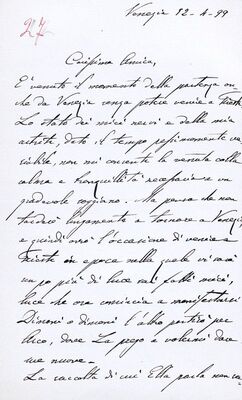 Venezia 12-4-99
27
Carissima Amica,
È venuto il momento della partenza an
che da Venezia senza potere venire a Trieste
Lo stato dei miei nervi e della mia
artrite, dato il tempo pessimamente va
riabile, non mi consente la venuta colla
calma e tranquillità necessarie un
gradevole soggiorno. Ma penso che non
tarderò lungamente a tornare a Venezia,
e quindi avrò l'occasione di venire a
Trieste in epoca nella quale vi sarà
un po più di luce nei fatti miei,
luce che ora comincia a manifestarsi
Domani o dimani l'altro partirò per
Arco, dove La prego a volermi dare
sue nuove.
La raccolta di cui Ella parla non ca